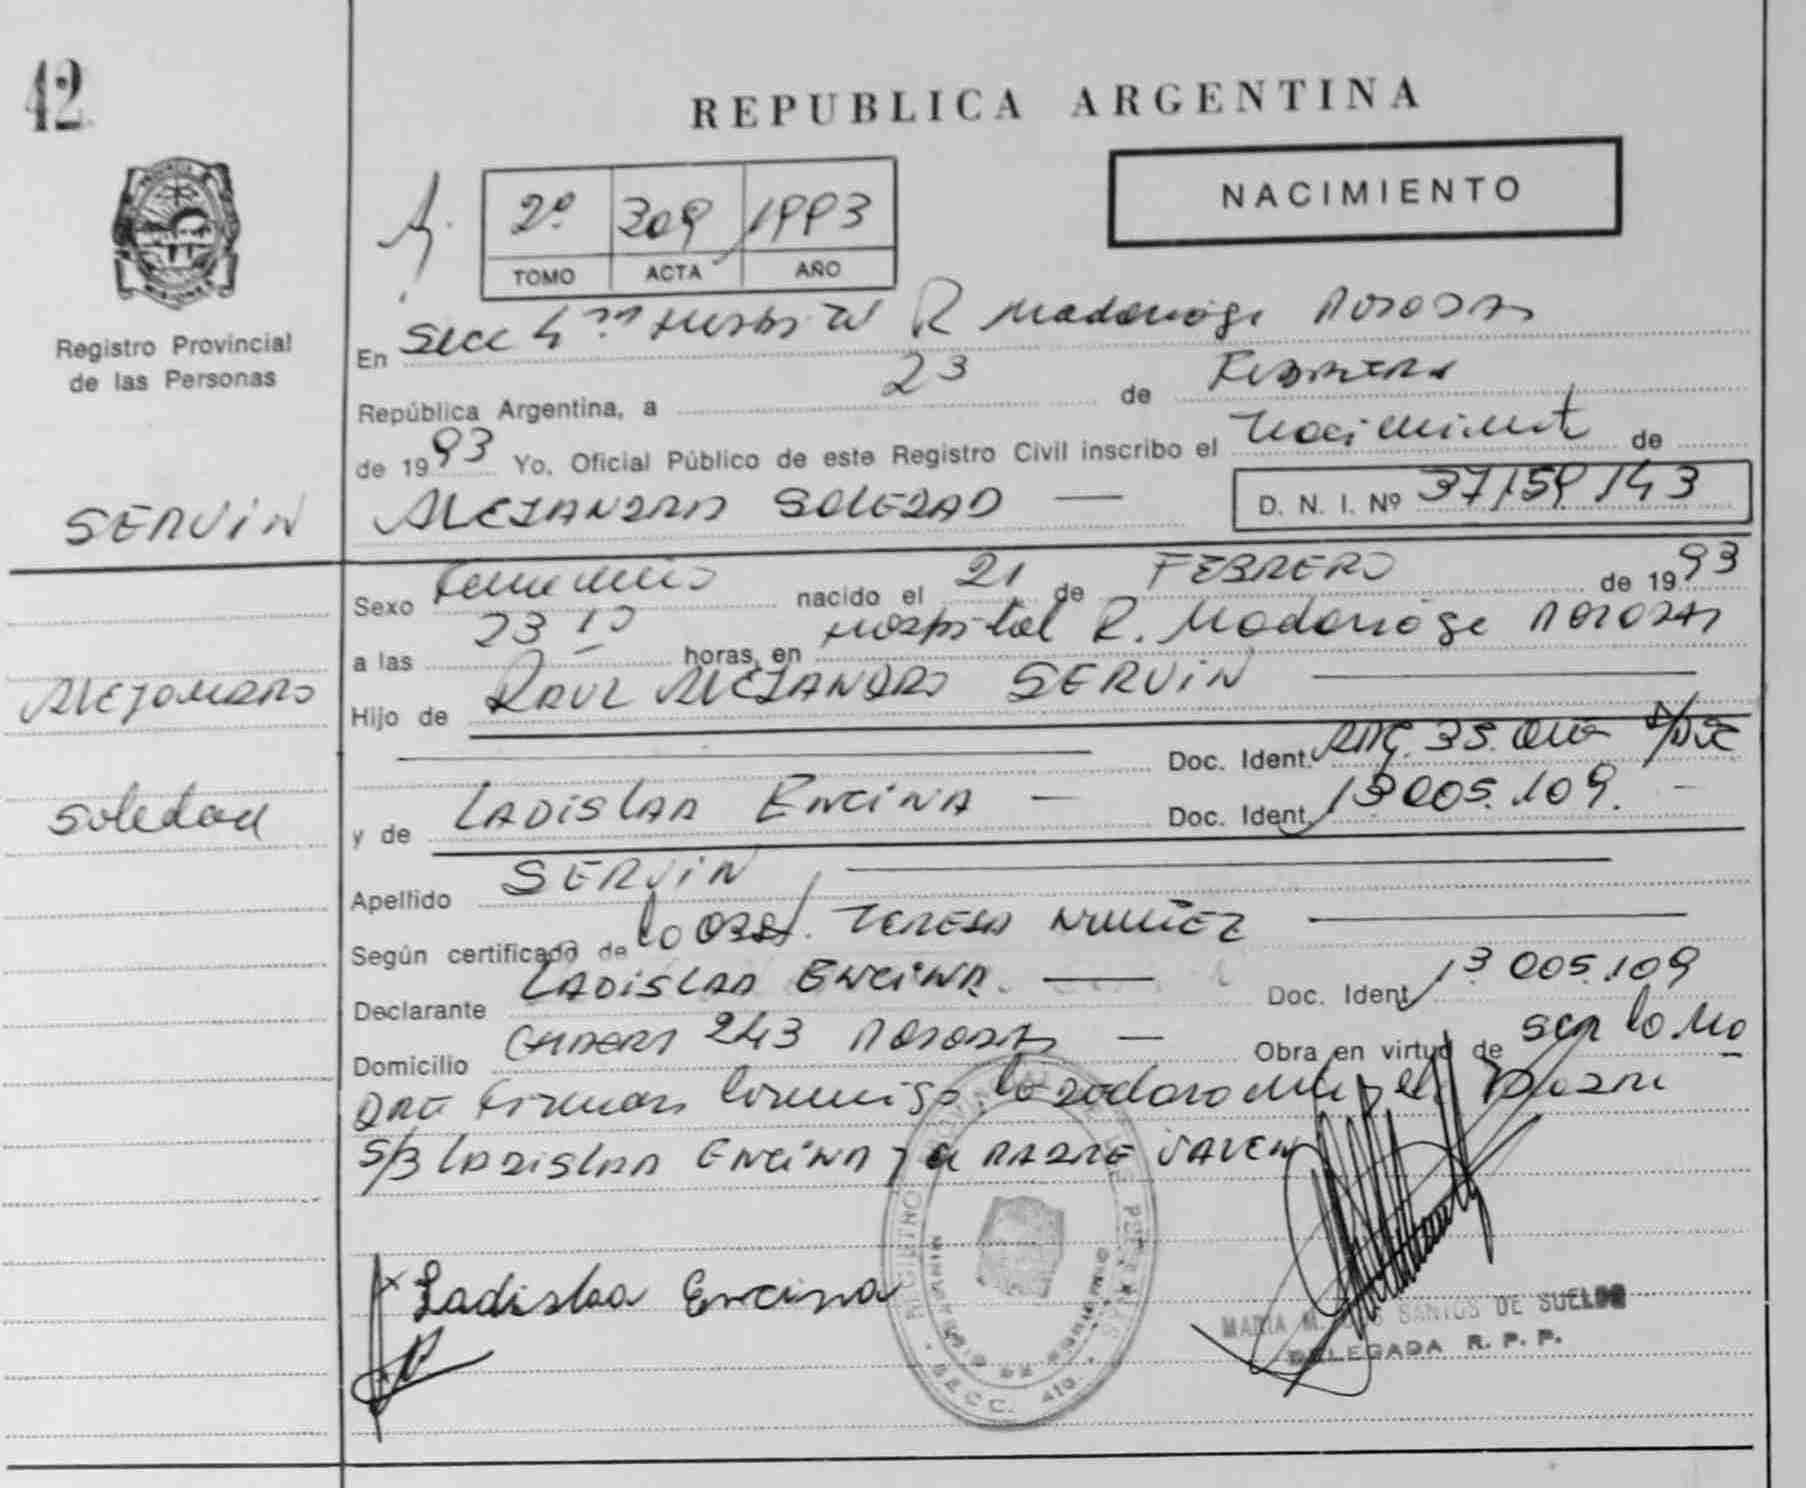 42
REPUBLICA ARGENTINA
NACIMIENTO
2º 309 1993
TOMO ACTA AÑO
Registro Provincial
de las Personas
En Secc 4ta Hospital R Madariaga Posadas
República Argentina, a 23 de Febrero
de 1993 Yo, Oficial Público de este Registro Civil inscribo el Nacimiento de
SERVIN ALEJANDRA SOLEDAD — D. N. I. Nº 37/159/143
Sexo Femenino nacido el 21 de FEBRERO de 1993
a las 23 horas, en Hospital R. Madariaga Posadas
Alejandra
Hijo de RAUL ALEJANDRO SERVIN —
— Doc. Ident. ARG. 35.
Soledad
y de LADISLAA ENCINA — Doc. Ident. 13005.109. —
Apellido SERVIN —
Según certificado de la Obst. TERESA NUÑEZ —
Declarante LADISLAA ENCINA. — Doc. Ident. 13 005.109
Domicilio 243 POSADAS — Obra en virtud de SER la Ma
DRE Firman conmigo la
S/B LADISLAA ENCINA
Ladislaa Encina
REGISTRO PROVINCIAL DE LAS PERSONAS
MINISTERIO DE GOBIERNO
SECC. 4ta.
MARIA M. DOS SANTOS DE SUELDO
DELEGADA R. P. P.